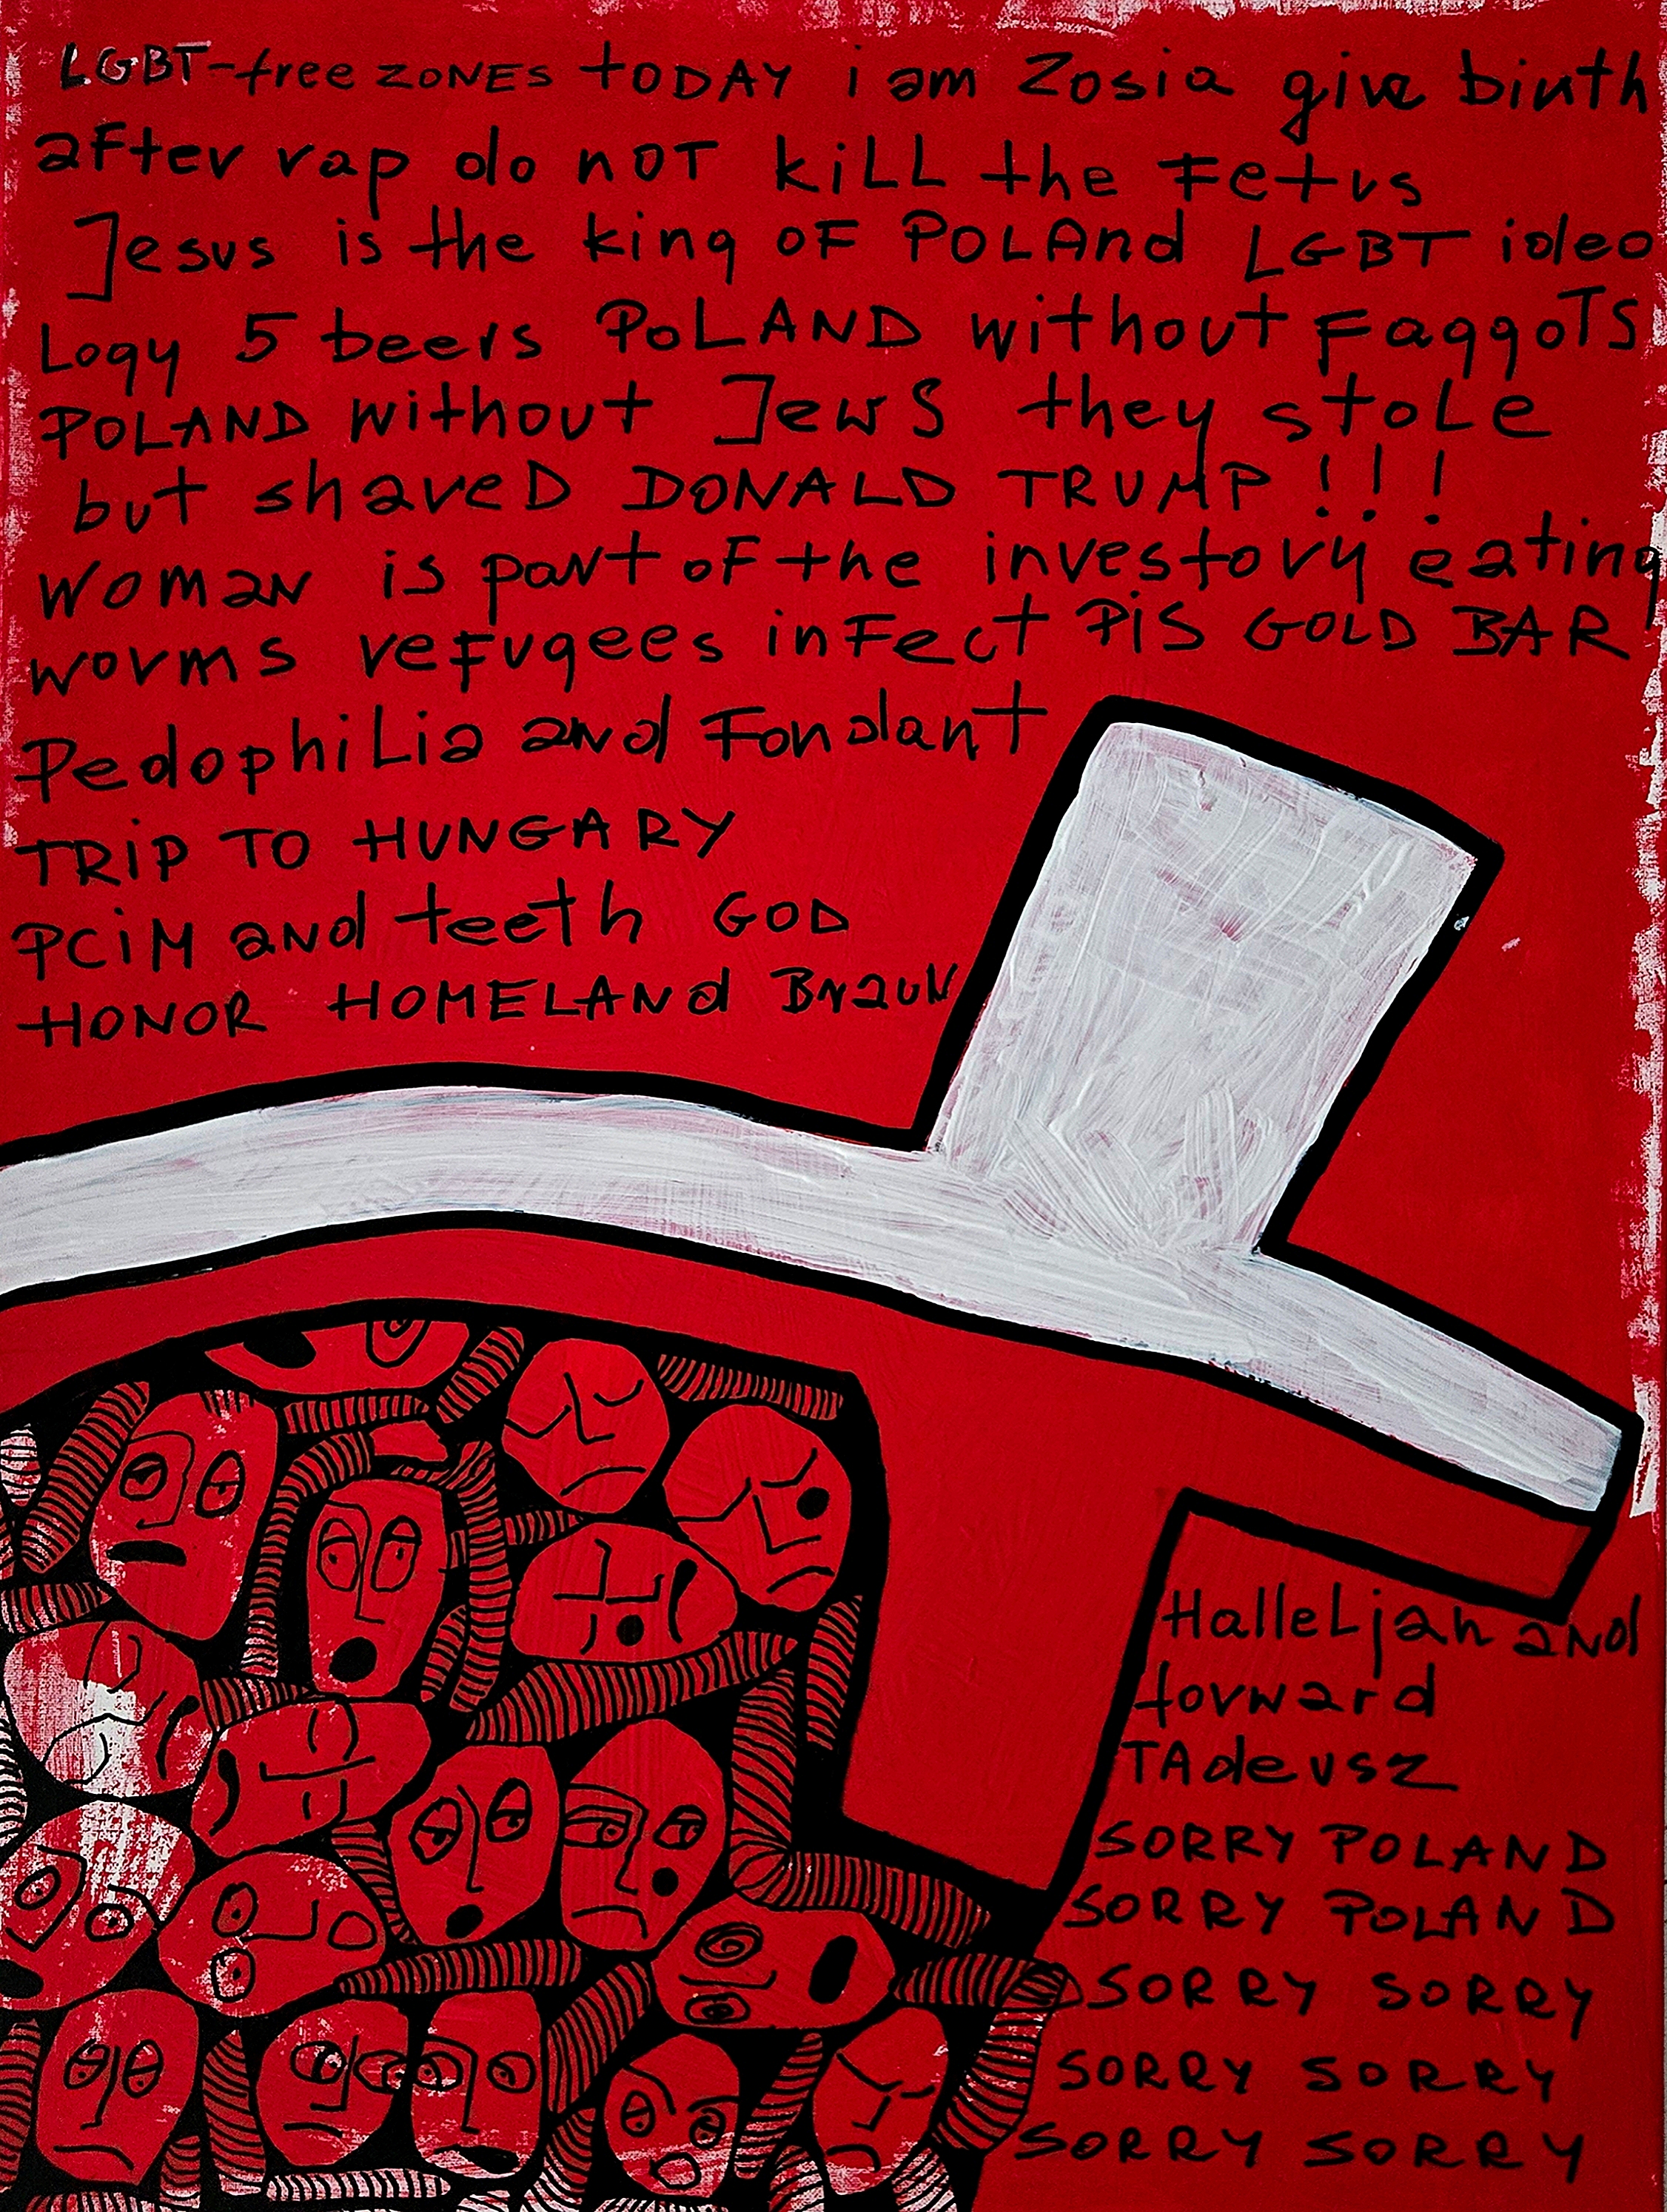 LGBT-free ZONES TODAY i am Zosia give birth
after rap do NOT kill the Fetus
Jesus is the king OF POLAnd LGBT ideo
Logy 5 beers POLAND without FaggoTS
POLAND without JewS they stole
but shaveD DONALD TRUMP!!!
Woman is part oF the investory eating
worms reFugees inFect PiS GOLD BAR
PedophiLia and Fondant
TRiP TO HUNGARY
PCiM and teeth GOD
HONOR HOMELANd BraUN
HalleLjah and
forward
TAdeusz
SORRY POLAND
SORRY POLAND
SORRY SORRY
SORRY SORRY
SORRY SORRY